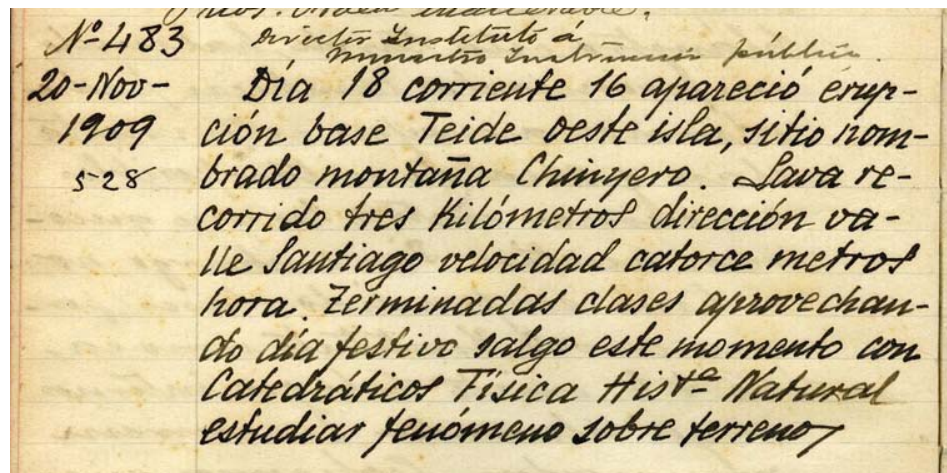 inalterable.
Nº 483 Director Instituto á
Ministro Instrucción pública.
20-Nov- Día 18 corriente 16 apareció erup-
1909 ción base Teide oeste isla, sitio nom-
528 brado montaña Chinyero. Lava re-
corrido tres Kilómetros dirección va-
lle Santiago velocidad catorce metros
hora. Terminadas clases aprovechan-
do día festivo salgo este momento con
Catedráticos Física Histª Natural
estudiar fenómeno sobre terreno